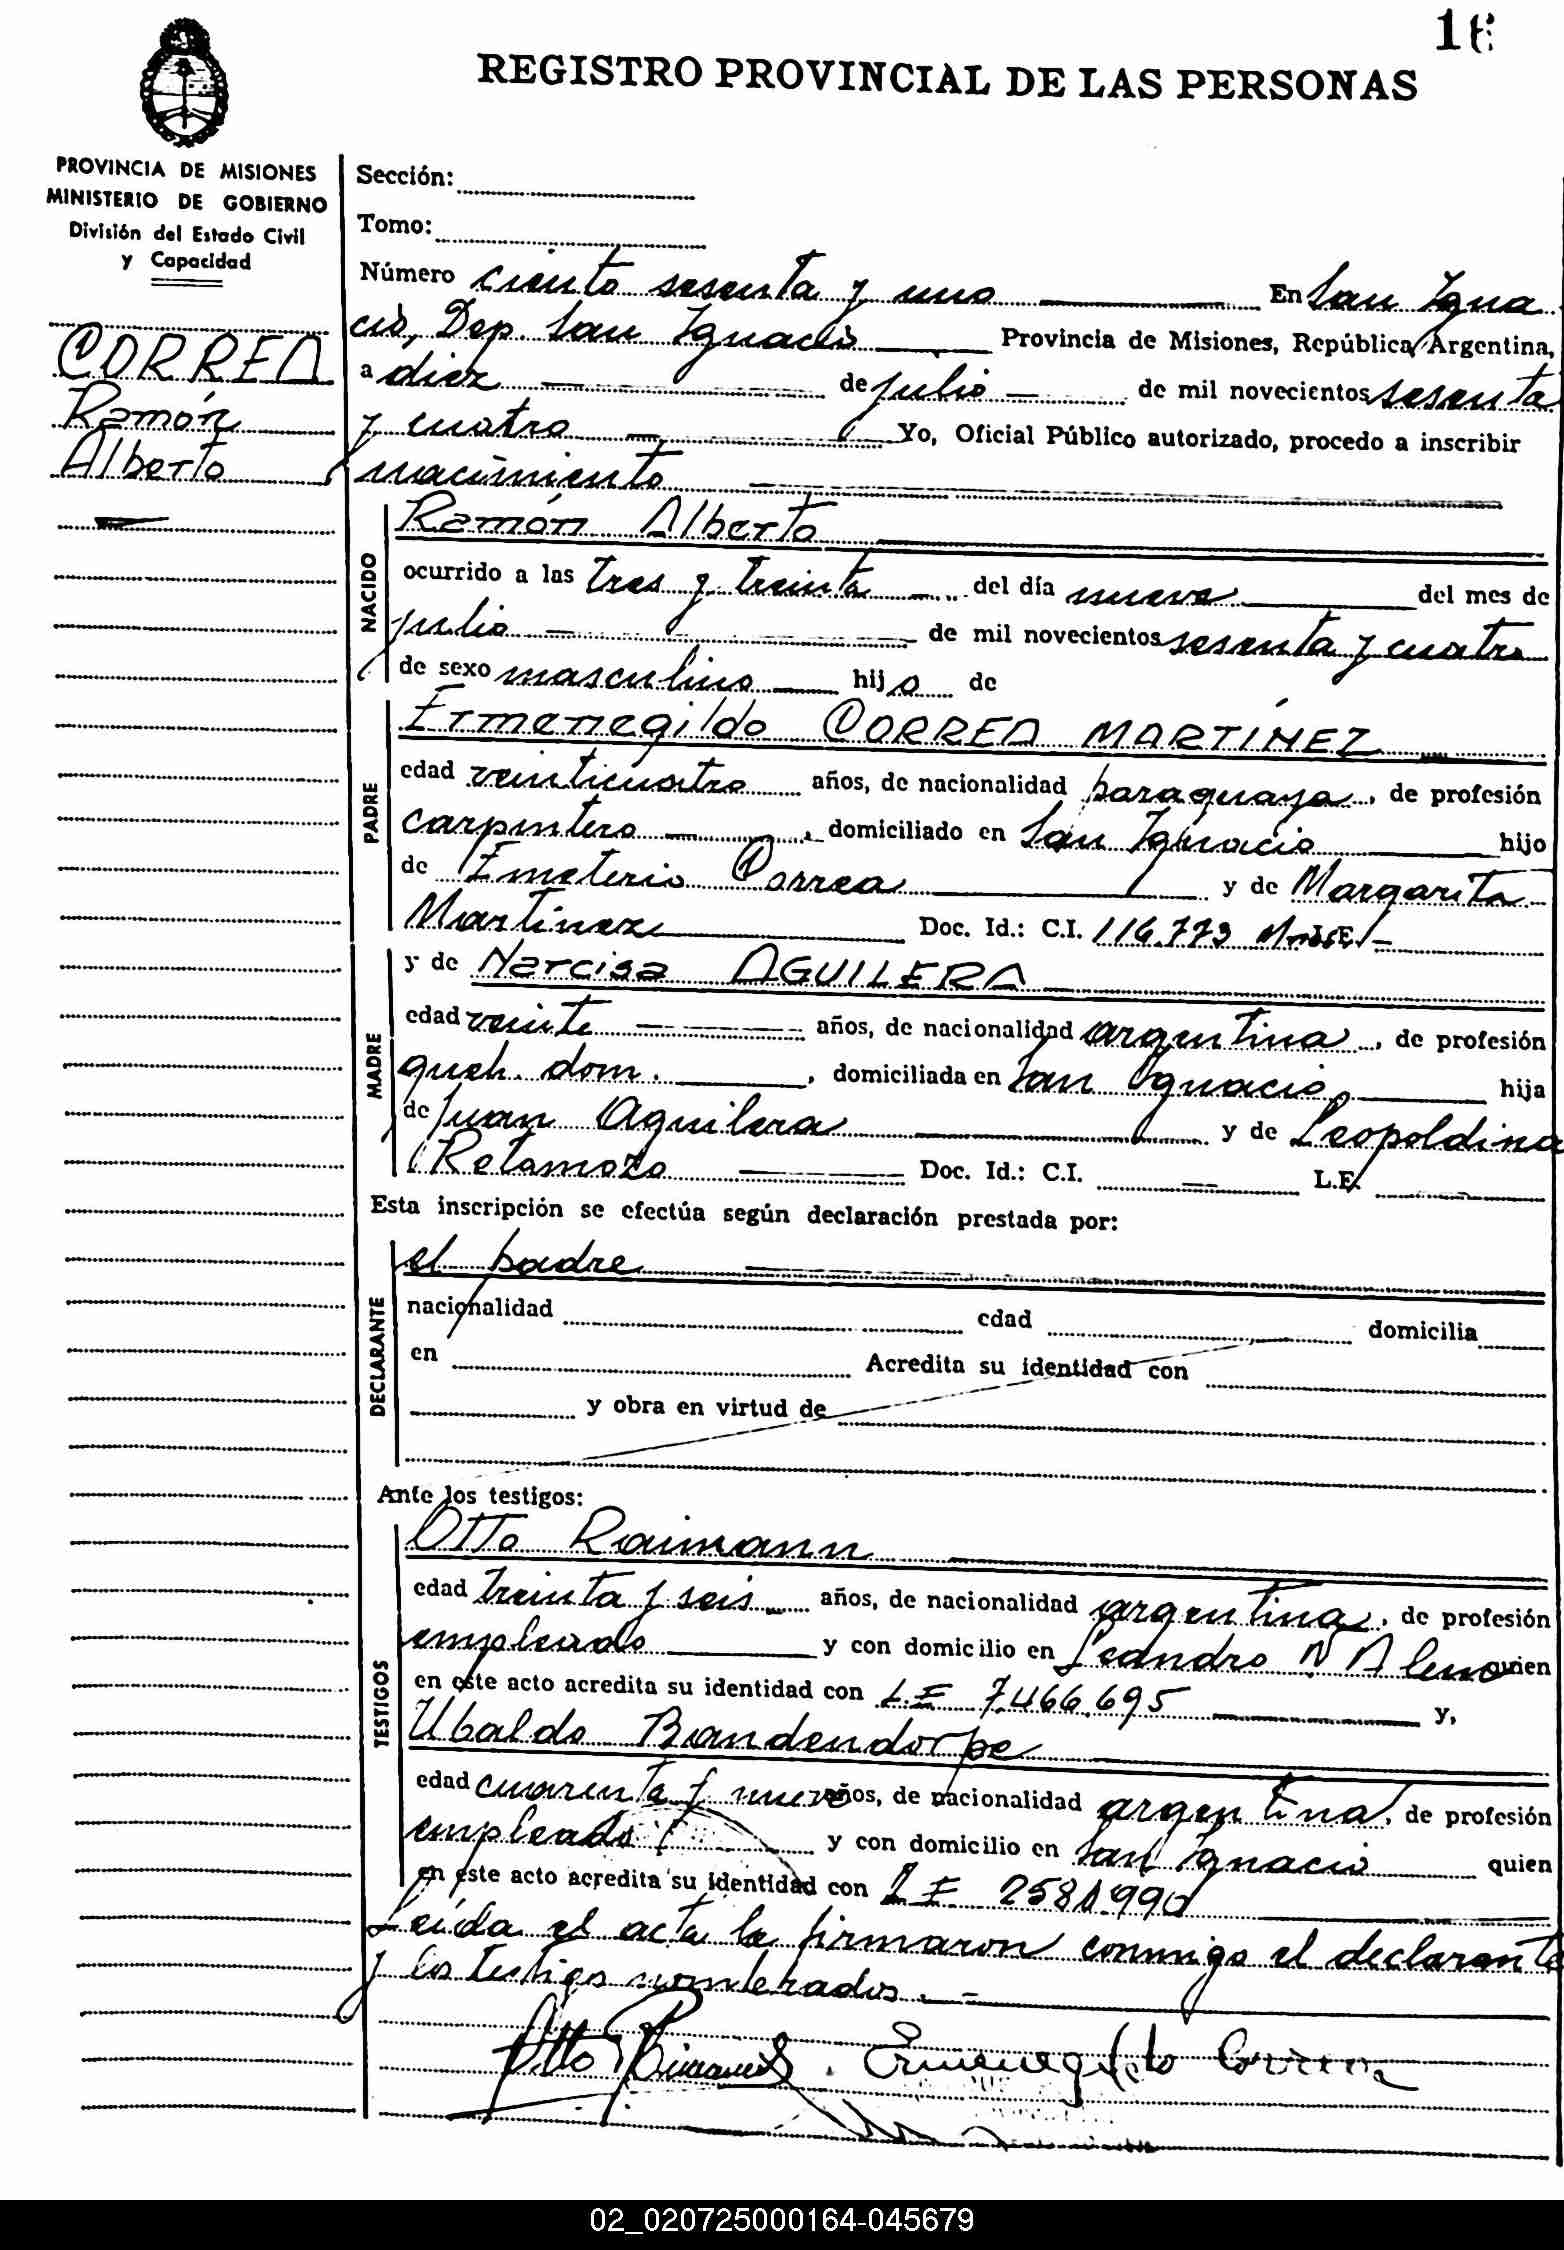 16
REGISTRO PROVINCIAL DE LAS PERSONAS
PROVINCIA DE MISIONES
MINISTERIO DE GOBIERNO
División del Estado Civil
y Capacidad
CORREA
Ramón
Alberto
Sección:
Tomo:
Número ciento sesenta y uno En San Igna
cio, Dep. San Ignacio Provincia de Misiones, República Argentina,
a diez de julio de mil novecientos sesenta
y cuatro Yo, Oficial Público autorizado, procedo a inscribir
nacimiento
NACIDO
Ramón Alberto
ocurrido a las tres y treinta del día nueve del mes de
julio de mil novecientos sesenta y cuatro
de sexo masculino hijo de
PADRE
Ermenegildo CORREA MARTÍNEZ
edad veinticuatro años, de nacionalidad paraguaya, de profesión
carpintero, domiciliado en San Ignacio hijo
de Emeterio Correa y de Margarita
Martínez Doc. Id.: C.I. 116.773 L.E.
MADRE
y de Narcisa AGUILERA
edad veinte años, de nacionalidad argentina, de profesión
queh. dom., domiciliada en San Ignacio hija
de Juan Aguilera y de Leopoldina
Retamozo Doc. Id.: C.I. L.E.
Esta inscripción se efectúa según declaración prestada por:
DECLARANTE
el padre
nacionalidad edad domicilia
en Acredita su identidad con
y obra en virtud de
Ante los testigos:
TESTIGOS
Otto Raimann
edad treinta y seis años, de nacionalidad argentina, de profesión
empleado y con domicilio en Leandro N Alem quien
en este acto acredita su identidad con L.E 7.466.695 y,
Ubaldo Brandendorpe
edad cuarenta y nueve años, de nacionalidad argentina, de profesión
empleado y con domicilio en San Ignacio quien
en este acto acredita su identidad con L E 2581.990
Leída el acta la firmaron conmigo el declarante
y los testigos nombrados. -
Otto Raimann Ermenegildo Correa
02_020725000164-045679